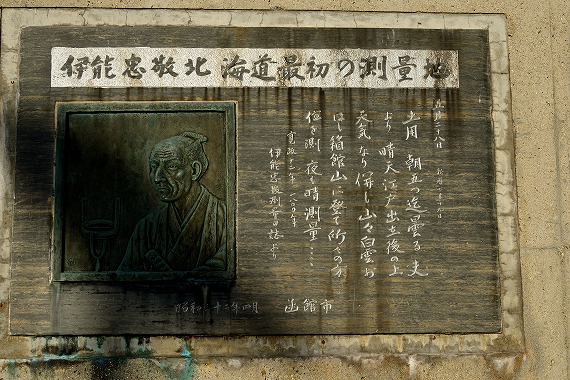 伊能忠敬北海道最初の測量地
五月二十八日
土用 朝五つ迄曇る 夫
より晴天江戸出立後の上
天気なり併し山々白雲お
ほし箱館山に登て所々の方
位を測 夜も晴測量
寛政十二年(一八〇〇年)
伊能忠敬測量日誌より
昭和三十二年四月 函館市